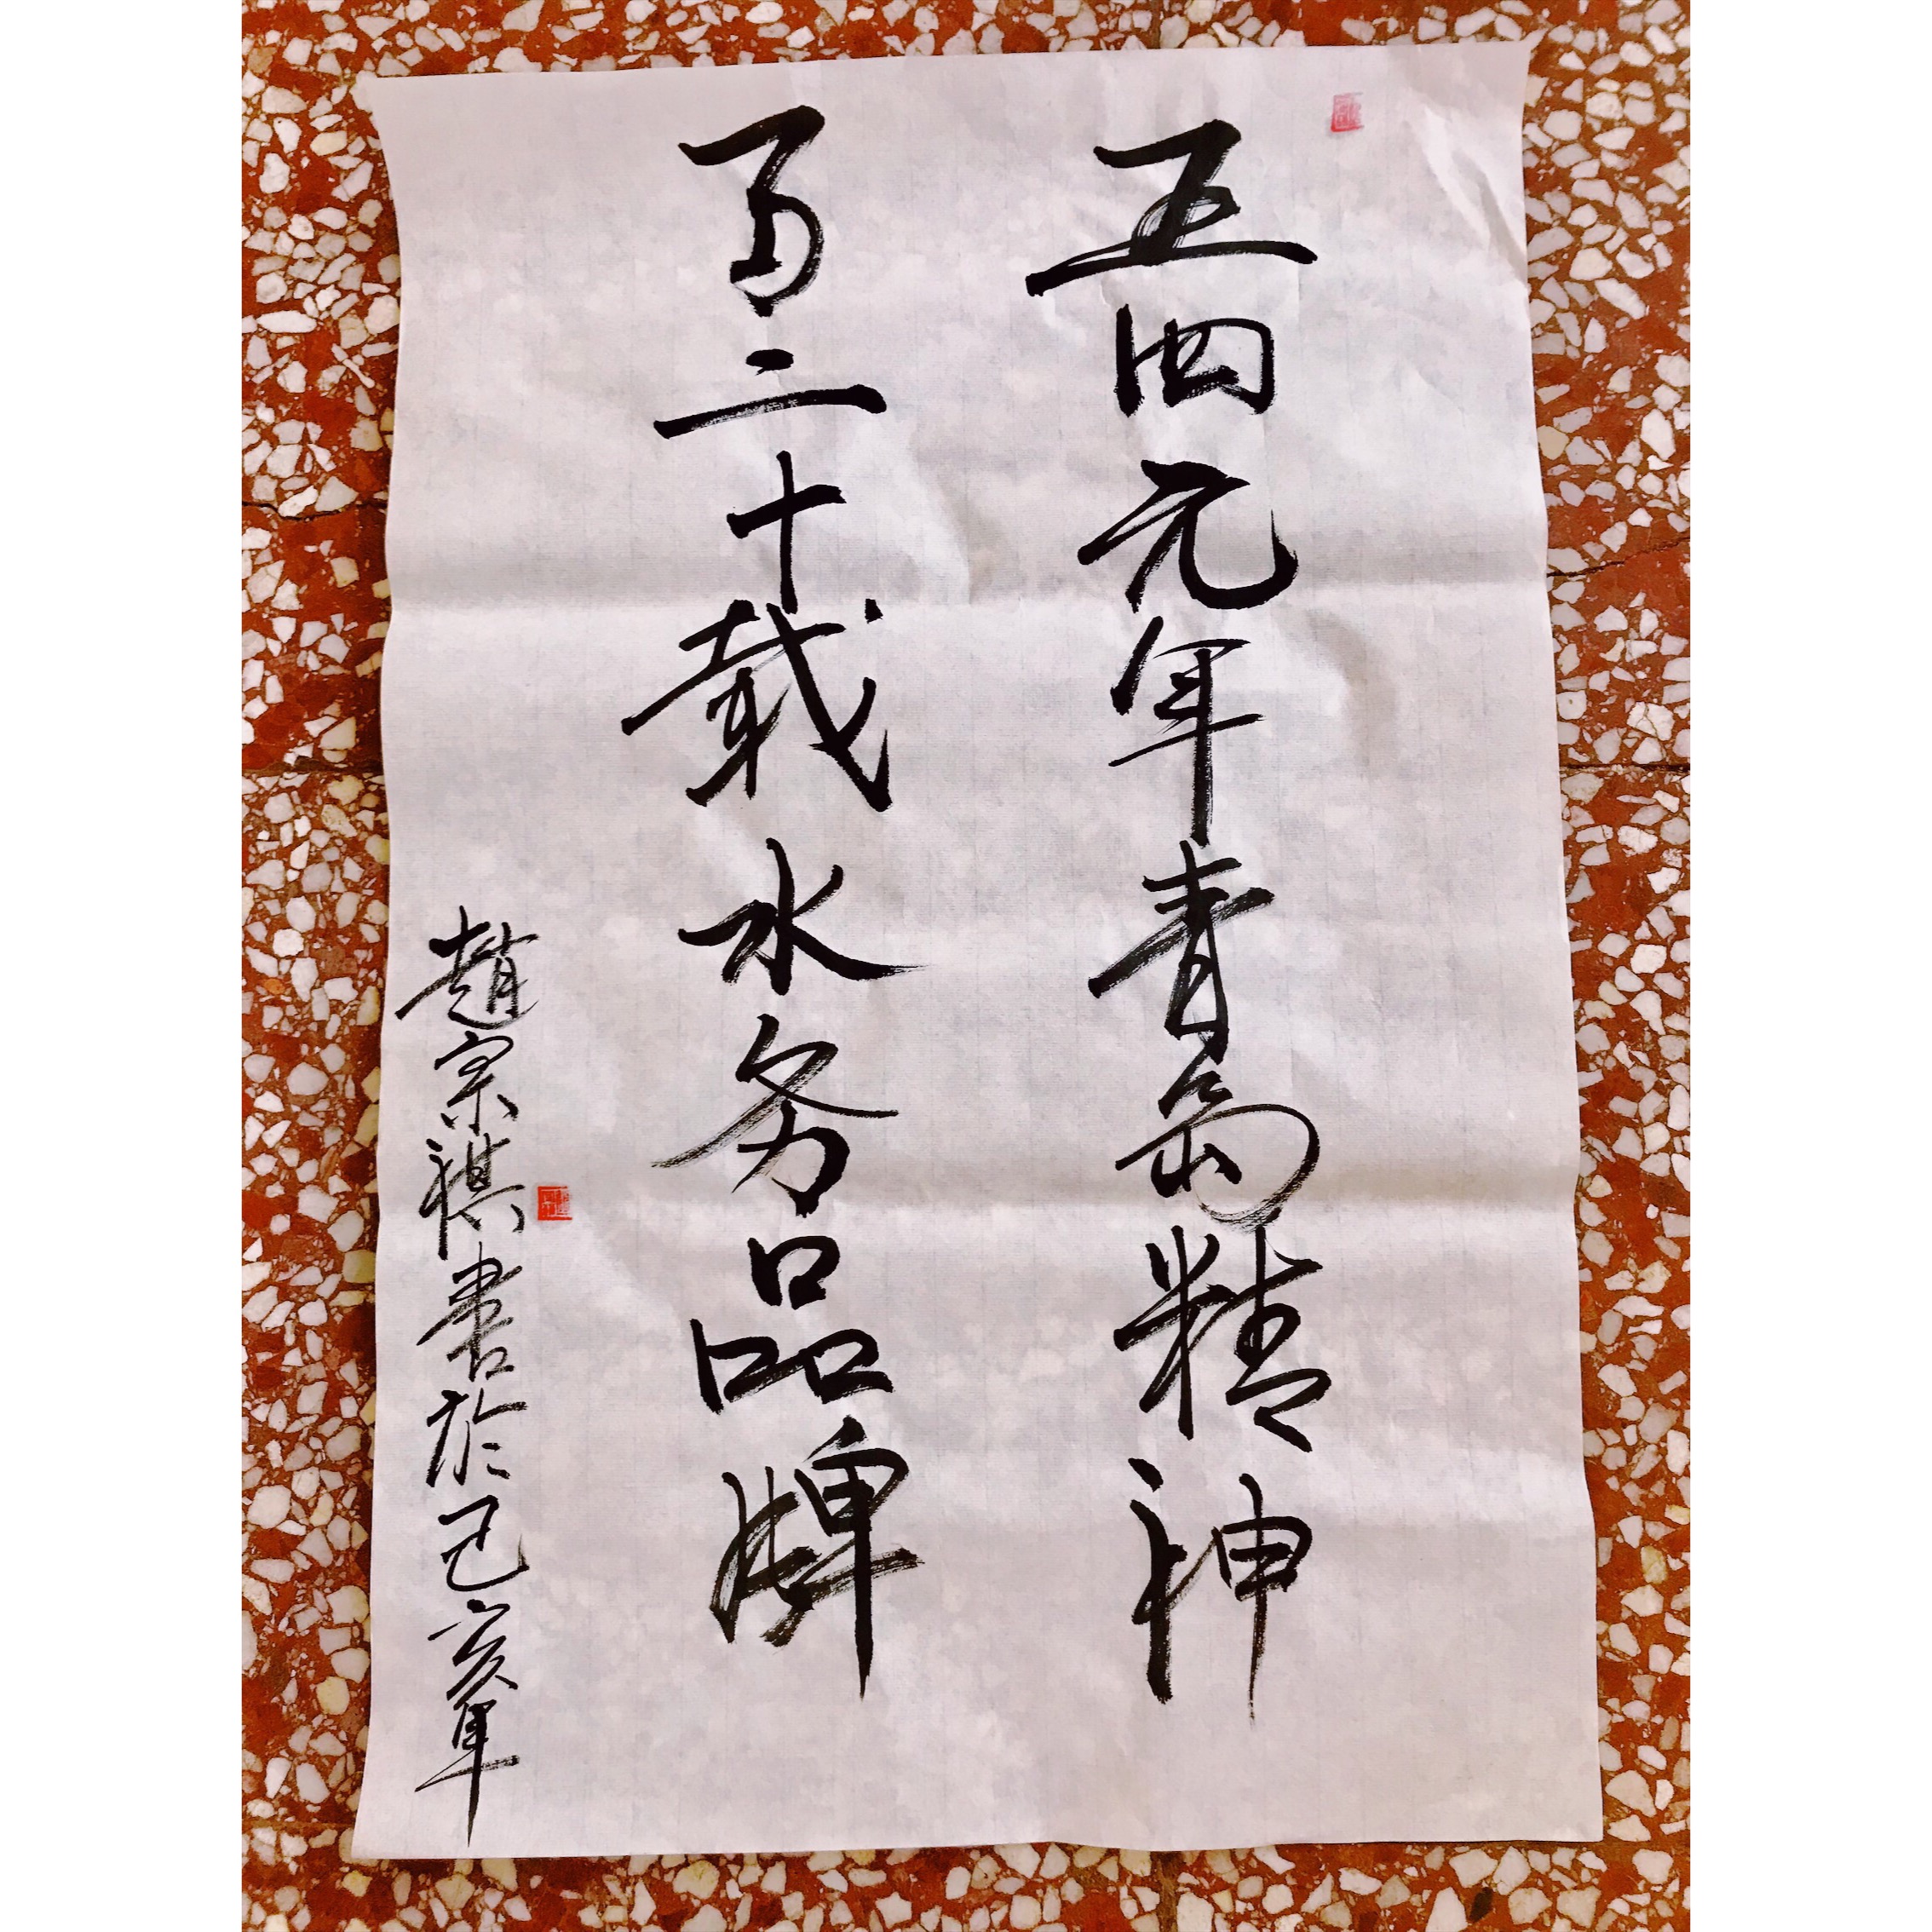 五四元年青岛精神
百二十载水务品牌
趙宗祺書於己亥年